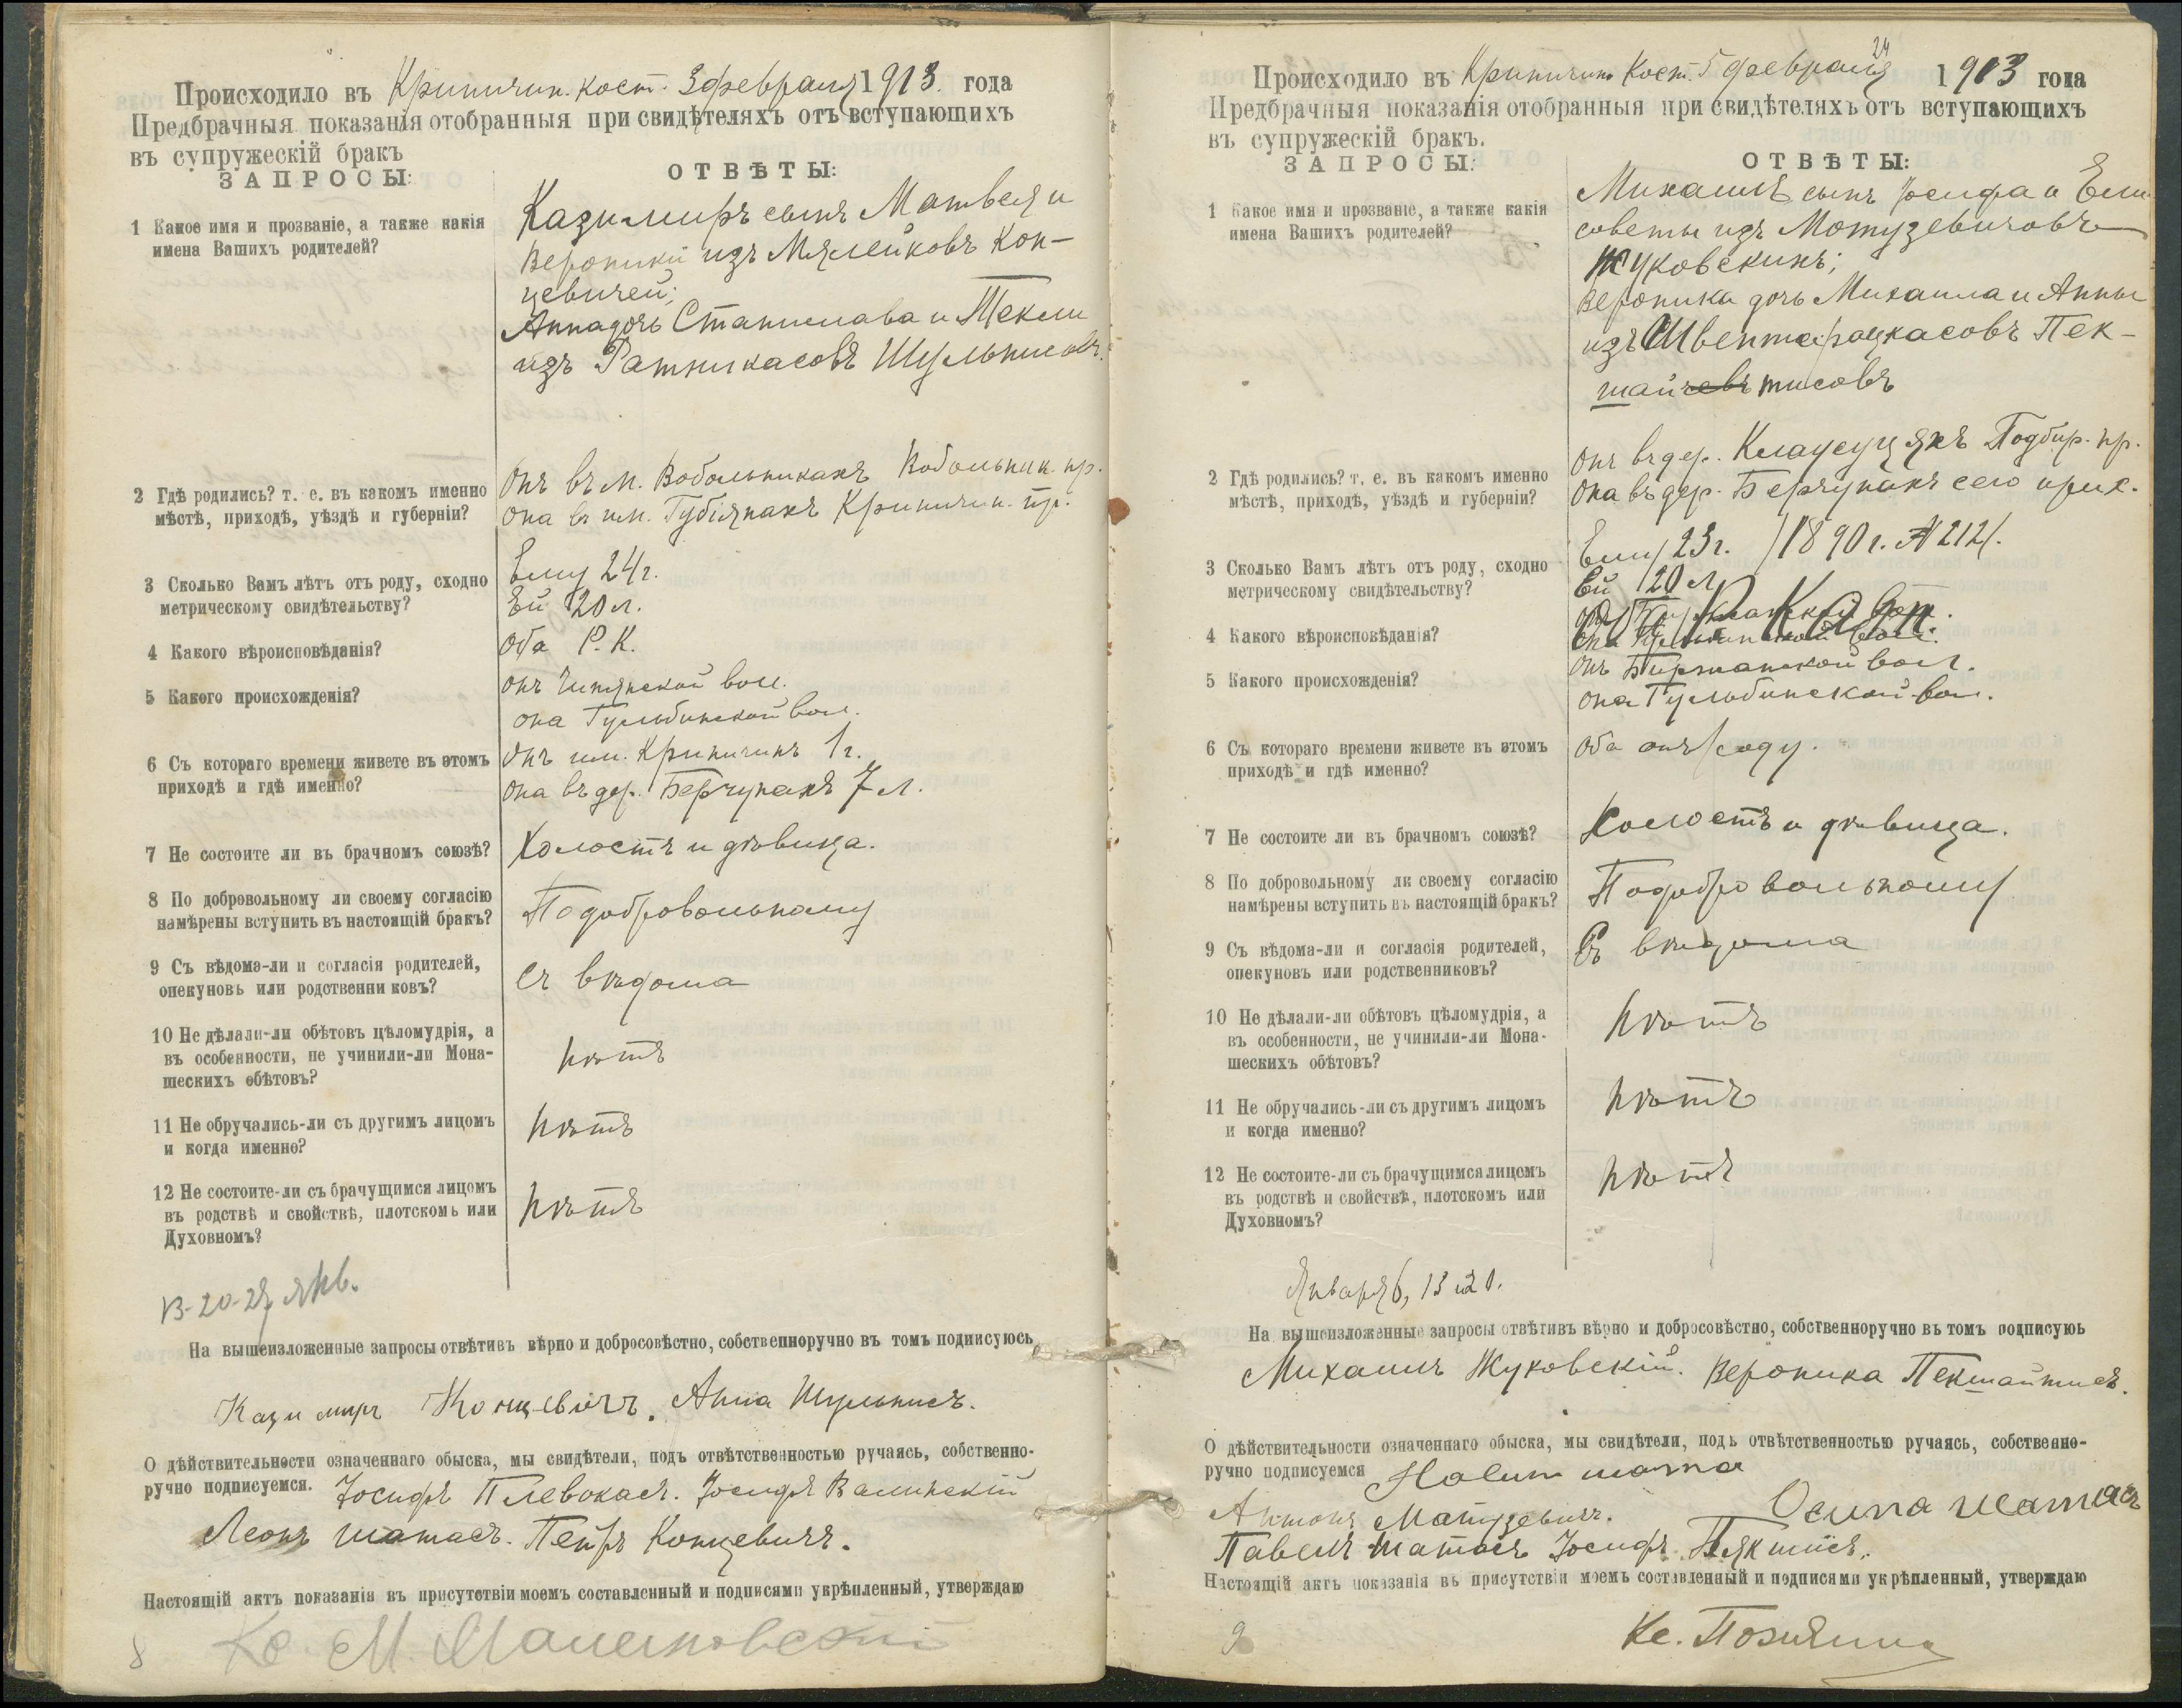 Происходило въ Криничин. кост. 3 февраля 1913. года
Предбрачныя показанія отобранныя при свидѣтеляхъ отъ вступающихъ
въ супружескій бракъ
ЗАПРОСЫ:
ОТВѢТЫ:
1 Какое имя и прозваніе, а также какія
имена Вашихъ родителей?
Казимиръ сынъ Матвея и
Вероники изъ Мялейковъ Кон-
цевичей;
Анна дочь Станислава и Текли
изъ Ратникасовъ Шульнисовъ.
2 Гдѣ родились? т. е. въ какомъ именно
мѣстѣ, приходѣ, уѣздѣ и губерніи?
Онъ въ м. Вобольникахъ Вобольник. пр.
Она въ им. Губіянахъ Криничин. пр.
3 Сколько Вамъ лѣтъ отъ роду, сходно
метрическому свидѣтельству?
Ему 24 г.
Ей 20 л.
4 Какого вѣроисповѣданія?
Оба Р. К.
5 Какого происхожденія?
онъ вол.
она Гульбинской вол.
6 Съ котораго времени живете въ этомъ
приходѣ и гдѣ именно?
Онъ им. Криничинъ 1 г.
Она въ дер. Берчунахъ 7 л.
7 Не состоите ли въ брачномъ союзѣ?
Холостъ и дѣвица.
8 По добровольному ли своему согласію
намѣрены вступить въ настоящій бракъ?
По добровольному
9 Съ вѣдома-ли и согласія родителей,
опекуновъ или родственниковъ?
Съ вѣдома
10 Не дѣлали-ли обѣтовъ цѣломудрія, а
въ особенности, не учинили-ли Мона-
шескихъ обѣтовъ?
нѣтъ
11 Не обручались-ли съ другимъ лицомъ
и когда именно?
нѣтъ
12 Не состоите-ли съ брачущимся лицомъ
въ родствѣ и свойствѣ, плотскомъ или
Духовномъ?
нѣтъ
13-20-27 янв.
На вышеизложенные запросы отвѣтивъ вѣрно и добросовѣстно, собственноручно въ томъ подписуюсь
Казимиръ Концевичъ. Анна Шульнисъ.
О дѣйствительности означеннаго обыска, мы свидѣтели, подъ отвѣтственностью ручаясь, собственно-
ручно подписуемся. Іосифъ Плевокасъ. Іосифъ Валинскій
Леонъ Шатасъ. Петръ Концевичъ.
Настоящій актъ показанія въ присутствіи моемъ составленный и подписями укрѣпленный, утверждаю
Кс. М.
8
Происходило въ Криничин. Кост. 5 февраля 1913 года
24
Предбрачныя показанія отобранныя при свидѣтеляхъ отъ вступающихъ
въ супружескій бракъ.
ЗАПРОСЫ:
ОТВѢТЫ:
1 Какое имя и прозваніе, а также какія
имена Вашихъ родителей?
Михаилъ сынъ Іосифа и Ели-
саветы изъ Мотузевичовъ
Жуковскихъ;
Вероника дочь Михаила и Анны
изъ Пек-
шайчевъ тисовъ
2 Гдѣ родились? т. е. въ какомъ именно
мѣстѣ, приходѣ, уѣздѣ и губерніи?
Онъ въ дер. Подбир. пр.
Она въ дер. Берчунахъ сего прих.
3 Сколько Вамъ лѣтъ отъ роду, сходно
метрическому свидѣтельству?
Ему 23 г. /1890 г. № 212/.
Ей 20 л.
4 Какого вѣроисповѣданія?
5 Какого происхожденія?
онъ Биржанской вол.
она Гульбинской вол.
6 Съ котораго времени живете въ этомъ
приходѣ и гдѣ именно?
Оба отъ роду.
7 Не состоите ли въ брачномъ союзѣ?
Холостъ и дѣвица.
8 По добровольному ли своему согласію
намѣрены вступить въ настоящій бракъ?
По добровольному
9 Съ вѣдома-ли и согласія родителей,
опекуновъ или родственниковъ?
Съ вѣдома
10 Не дѣлали-ли обѣтовъ цѣломудрія, а
въ особенности, не учинили-ли Мона-
шескихъ обѣтовъ?
нѣтъ
11 Не обручались-ли съ другимъ лицомъ
и когда именно?
нѣтъ
12 Не состоите-ли съ брачущимся лицомъ
въ родствѣ и свойствѣ, плотскомъ или
Духовномъ?
нѣтъ
Января 6, 13 и 20.
На вышеизложенные запросы отвѣтивъ вѣрно и добросовѣстно, собственноручно въ томъ подписуюь
Михаилъ Жуковскій. Вероника Пекшайтисъ.
О дѣйствительности означеннаго обыска, мы свидѣтели, подъ отвѣтственностью ручаясь, собственно-
ручно подписуемся
Антонъ Матузевичъ. Осипа Шатасъ
Павелъ Шатасъ Іосифъ Пякшисъ.
Настоящій актъ показанія въ присутствіи моемъ составленный и подписями укрѣпленный, утверждаю
Кс.
9